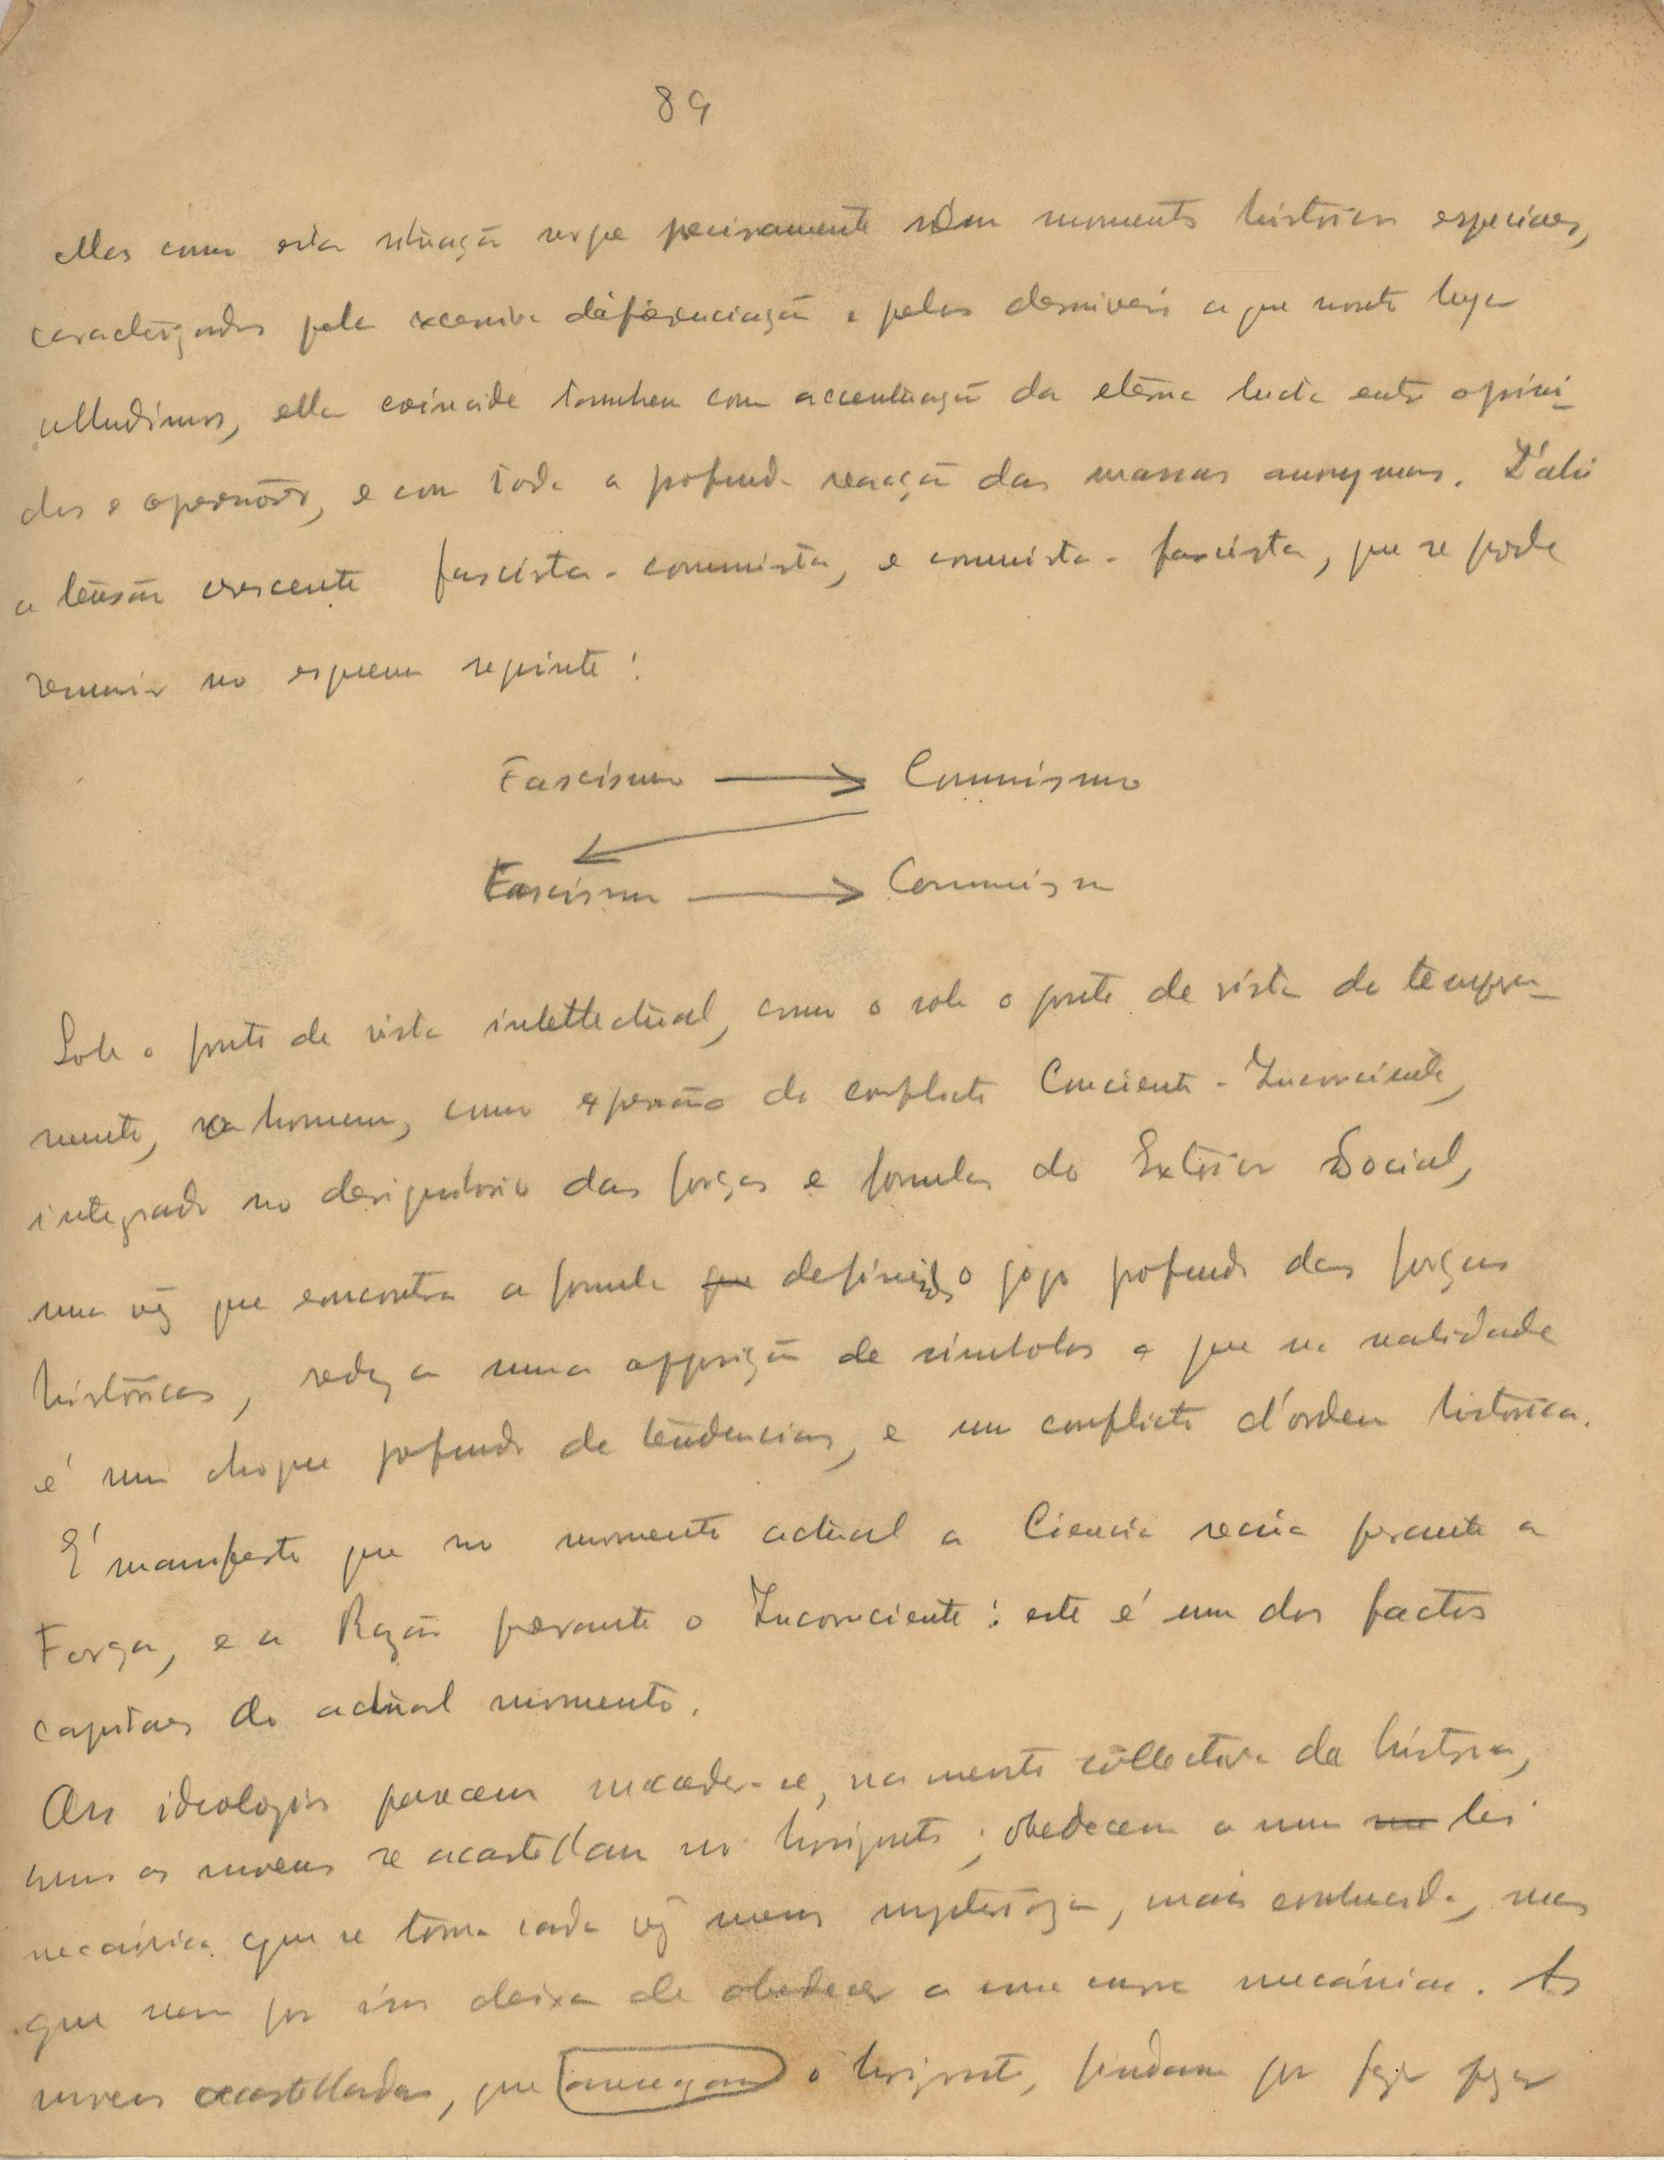 89
Mas como esta situação surge precisamente n'um momento historico especiaes,
caracterizados pela excessiva differenciação e pelos desniveis a que n'outro lugar
alludimos, ella coincide tambem com accentuação da eterna lucta entre opprimi-
dos e oppressores, e com toda a profunda reacção das massas anonymas. D'ahi
a tensão crescente fascista-communista, e communista-fascista, que se pode
resumir no esquema seguinte:
Fascismo → Communismo
Fascismo → Communismo
Sob o ponto de vista intellectual, como o sob o ponto de vista do tempera-
mento, o homem, como expressão do conflicto Consciente-Inconsciente,
integrado no das forças e formulas do Exterior Social,
uma vez que encontra a formula que definido o jogo profundo das forças
historicas, reduz a uma opposição de simbolos o que na realidade
é um choque profundo de tendencias, e um conflicto d'ordem historica.
É manifesto que no momento actual a Ciencia recúa perante a
Força, e a Razão perante o Inconsciente: este é um dos factos
capitaes do actual momento.
As ideologias parecem succeder-se, na mente collectiva da historia,
como as nuvens se acastellam no horizonte; obedecem a uma lei
mecánica que se torna cada vez menos mysteriosa, mais conhecida, mas
que nem por isso deixa de obedecer a uma causa mecánica. As
nuvens acastelladas, que o horizonte, findam por fazer